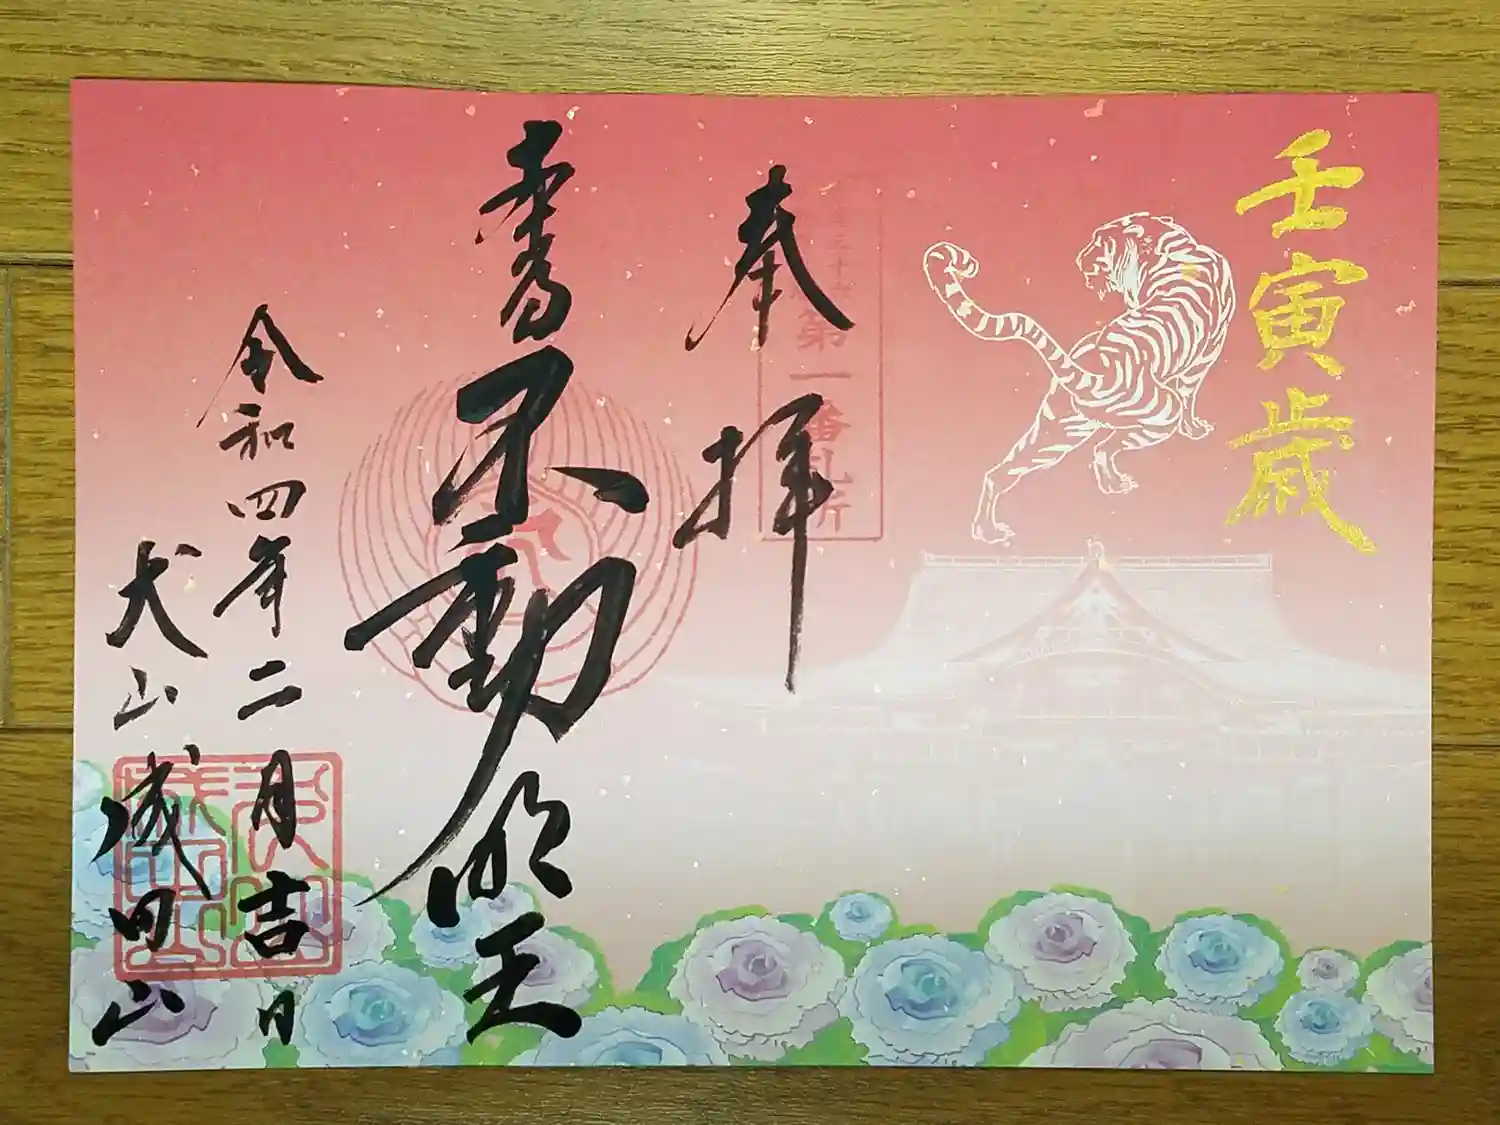 壬寅歳
奉拝
第一番札所
本尊不動明王
令和四年二月吉日
犬山成田山